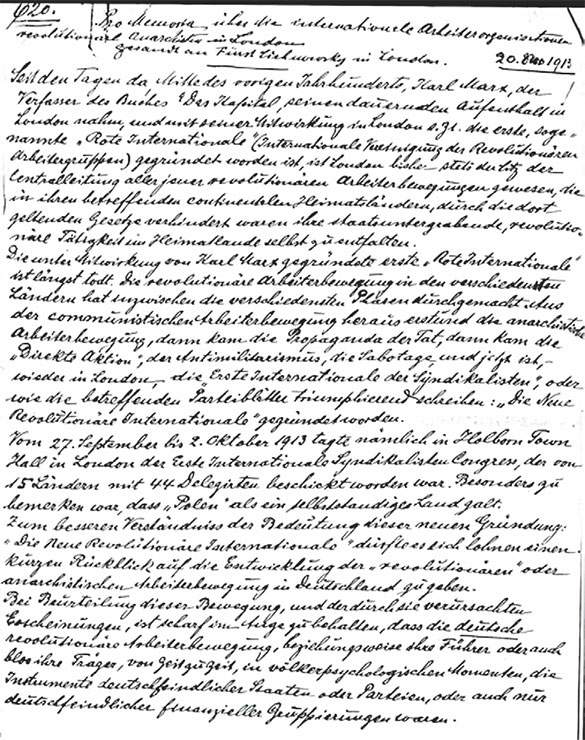 620.
Pro Memoria über die internationale Arbeiterorganisationen
revolutionäre Anarchisten in London
gesandt an Fürst Lichnowsky in London.
20. Dec 1913
Seit den Tagen da Mitte des vorigen Jahrhunderts, Karl Marx, der
Verfasser des Buches "Das Kapital, seinen dauernden Aufenthalt in
London nahm, und mit seiner Mitwirkung in London s. Zt. die erste, soge-
nannte „Rote Internationale" (Internationale Vereinigung der Revolutionären
Arbeitergruppen) gegründet worden ist, ist London bisher stets der Sitz der
Centralleitung aller jener revolutionären Arbeiterbewegungen gewesen, die
in ihren betreffenden continentalen Heimatsländern, durch die dort
geltenden Gesetze verhindert waren ihre staatsuntergrabende, revolutio-
näre Tätigkeit im Heimatlande selbst zu entfalten.
Die unter Mitwirkung von Karl Marx gegründete erste „Rote Internationale"
ist längst todt. Die revolutionäre Arbeiterbewegung in den verschiedensten
Ländern hat inzwischen die verschiedensten Phasen durchgemacht. Aus
der communistischen Arbeiterbewegung heraus erstund die anarchistische
Arbeiterbewegung, dann kam die Propaganda der Tat, dann kam die
„Direkte Aktion", der Antimilitarismus, die Sabotage und jetzt ist, –
wieder in London die Erste Internationale der Syndikalisten", oder
wie die betreffenden Parteiblätter triumphierend schreiben: „Die Neue
Revolutionäre Internationale" gegründet worden.
Vom 27. September bis 2. Oktober 1913 tagte nämlich in Holborn Town
Hall in London der Erste Internationale Syndikalisten Congress, der von
15 Ländern mit 44 Delegirten beschickt worden war. Besonders zu
bemerken war, dass „Polen" als ein selbstständiges Land galt.
Zum besseren Verständniss der Bedeutung dieser neuen Gründung:
„Die Neue Revolutionäre Internationale" dürfte es sich lohnen einen
kurzen Rückblick auf die Entwicklung der „revolutionären" oder
anarchistischen Arbeiterbewegung in Deutschland zu geben.
Bei Beurteilung dieser Bewegung, und der durch sie verursachten
Erscheinungen, ist scharf im Auge zu behalten, dass die deutsche
revolutionäre Arbeiterbewegung, beziehungsweise ihre Führer oder auch
blos ihre Träger, von Zeit zu Zeit, in völkerpsychologischen Momenten, die
Instrumente deutschfeindlicher Staaten oder Parteien, oder auch nur
deutschfeindlicher finanzieller Gruppierungen waren.